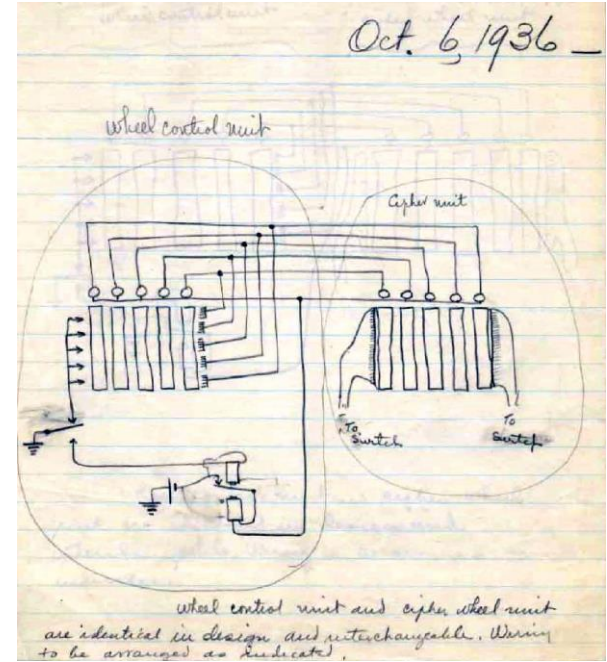 Oct. 6, 1936
wheel control unit
Cipher unit
To
Switch
To
Switch
wheel control unit and cipher wheel unit
are identical in design and interchangeable. Wiring
to be arranged as indicated.